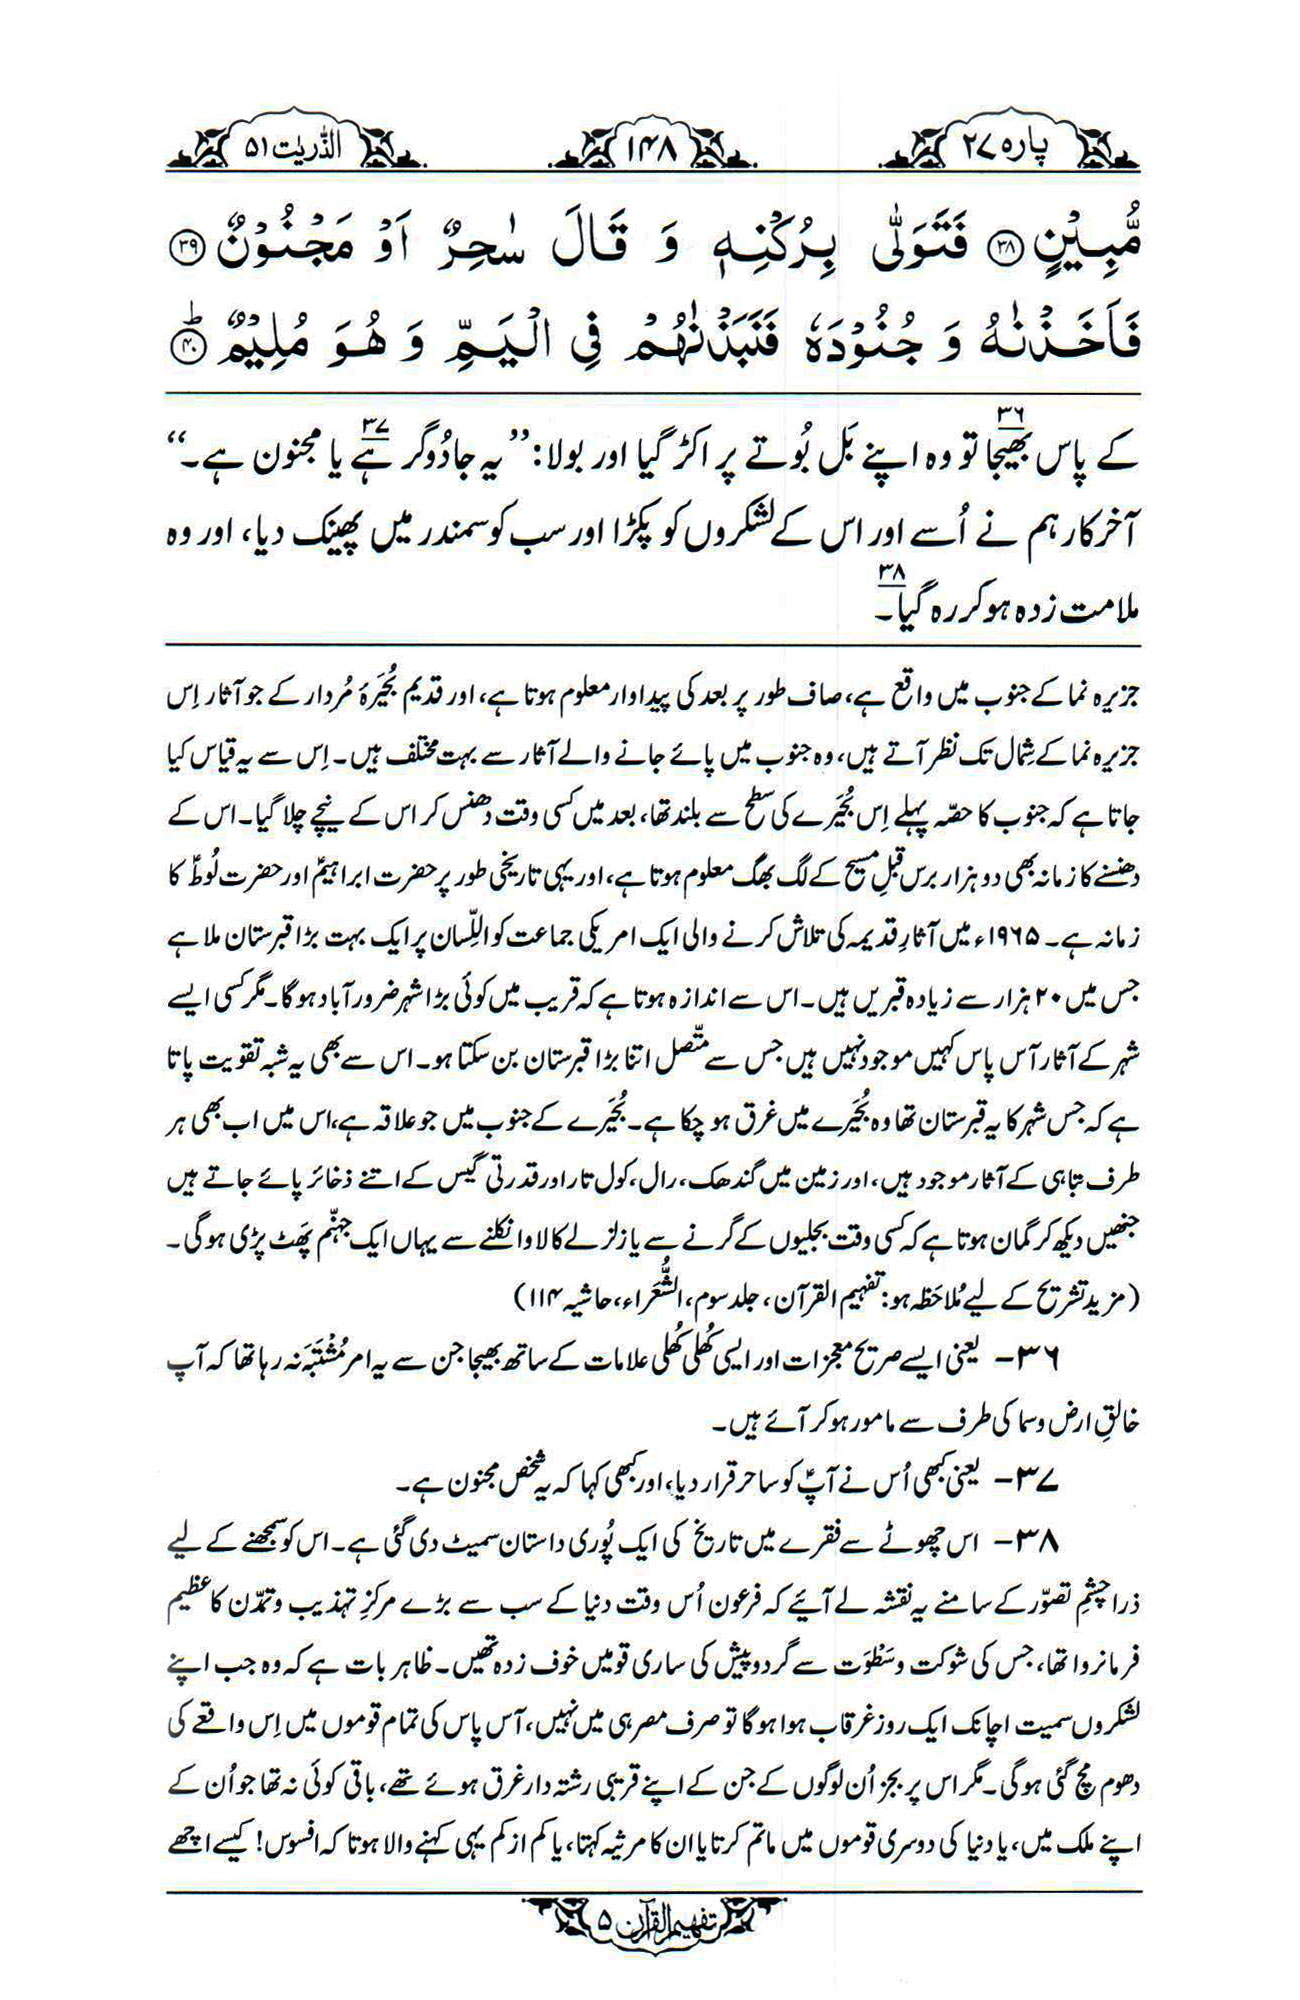 پارہ ۲۷
۱۴۸
الذّٰریٰت ۵۱
مُّبِیۡنٍ ﴿۳۸﴾ فَتَوَلّٰی بِرُکۡنِہٖ وَ قَالَ سٰحِرٌ اَوۡ مَجۡنُوۡنٌ ﴿۳۹﴾
فَاَخَذۡنٰہُ وَ جُنُوۡدَہٗ فَنَبَذۡنٰہُمۡ فِی الۡیَمِّ وَ ہُوَ مُلِیۡمٌ ﴿ؕ۴۰﴾
کے پاس بھیجا۳۶ تو وہ اپنے بَل بُوتے پر اکڑ گیا اور بولا: ”یہ جادُوگر ہے۳۷ یا مجنون ہے۔“
آخرکار ہم نے اُسے اور اس کے لشکروں کو پکڑا اور سب کو سمندر میں پھینک دیا، اور وہ
ملامت زدہ ہو کر رہ گیا۳۸۔
جزیرہ نما کے جنوب میں واقع ہے، صاف طور پر بعد کی پیداوار معلوم ہوتا ہے، اور قدیم بُحَیرَۂ مُردار کے جو آثار اِس
جزیرہ نما کے شِمال تک نظر آتے ہیں، وہ جنوب میں پائے جانے والے آثار سے بہت مختلف ہیں۔ اِس سے یہ قیاس کیا
جاتا ہے کہ جنوب کا حصّہ پہلے اِس بُحَیرے کی سطح سے بلند تھا، بعد میں کسی وقت دھنس کر اس کے نیچے چلا گیا۔ اس کے
دھنسنے کا زمانہ بھی دو ہزار برس قبلِ مسیح کے لگ بھگ معلوم ہوتا ہے، اور یہی تاریخی طور پر حضرت ابراہیمؑ اور حضرت لُوطؑ کا
زمانہ ہے۔ ۱۹۶۵ء میں آثارِ قدیمہ کی تلاش کرنے والی ایک امریکی جماعت کو اللِّسان پر ایک بہت بڑا قبرستان ملا ہے
جس میں ۲۰ ہزار سے زیادہ قبریں ہیں۔ اس سے اندازہ ہوتا ہے کہ قریب میں کوئی بڑا شہر ضرور آباد ہوگا۔ مگر کسی ایسے
شہر کے آثار آس پاس کہیں موجود نہیں ہیں جس سے متّصل اتنا بڑا قبرستان بن سکتا ہو۔ اس سے بھی یہ شبہ تقویت پاتا
ہے کہ جس شہر کا یہ قبرستان تھا وہ بُحَیرے میں غرق ہو چکا ہے۔ بُحَیرے کے جنوب میں جو علاقہ ہے، اس میں اب بھی ہر
طرف تباہی کے آثار موجود ہیں، اور زمین میں گندھک، رال، کول تار اور قدرتی گیس کے اتنے ذخائر پائے جاتے ہیں
جنھیں دیکھ کر گمان ہوتا ہے کہ کسی وقت بجلیوں کے گرنے سے یا زلزلے کا لاوا نکلنے سے یہاں ایک جہنّم پَھٹ پڑی ہوگی۔
(مزید تشریح کے لیے مُلاحَظہ ہو: تفہیم القرآن، جلد سوم، الشُّعَراء، حاشیہ ۱۱۴)
۳۶- یعنی ایسے صریح معجزات اور ایسی کُھلی کُھلی علامات کے ساتھ بھیجا جن سے یہ امر مُشْتَبَہ نہ رہا تھا کہ آپ
خالقِ ارض و سما کی طرف سے مامور ہو کر آئے ہیں۔
۳۷- یعنی کبھی اُس نے آپؑ کو ساحر قرار دیا، اور کبھی کہا کہ یہ شخص مجنون ہے۔
۳۸- اس چھوٹے سے فقرے میں تاریخ کی ایک پُوری داستان سمیٹ دی گئی ہے۔ اس کو سمجھنے کے لیے
ذرا چشمِ تصوّر کے سامنے یہ نقشہ لے آئیے کہ فرعون اُس وقت دنیا کے سب سے بڑے مرکزِ تہذیب و تمدّن کا عظیم
فرمانروا تھا، جس کی شوکت و سَطْوَت سے گرد و پیش کی ساری قومیں خوف زدہ تھیں۔ ظاہر بات ہے کہ وہ جب اپنے
لشکروں سمیت اچانک ایک روز غرقاب ہوا ہوگا تو صرف مصر ہی میں نہیں، آس پاس کی تمام قوموں میں اِس واقعے کی
دھوم مچ گئی ہوگی۔ مگر اس پر بجز اُن لوگوں کے جن کے اپنے قریبی رشتہ دار غرق ہوئے تھے، باقی کوئی نہ تھا جو اُن کے
اپنے ملک میں، یا دنیا کی دوسری قوموں میں ماتم کرتا یا ان کا مرثیہ کہتا، یا کم از کم یہی کہنے والا ہوتا کہ افسوس! کیسے اچھے
تفہیم القرآن ۵